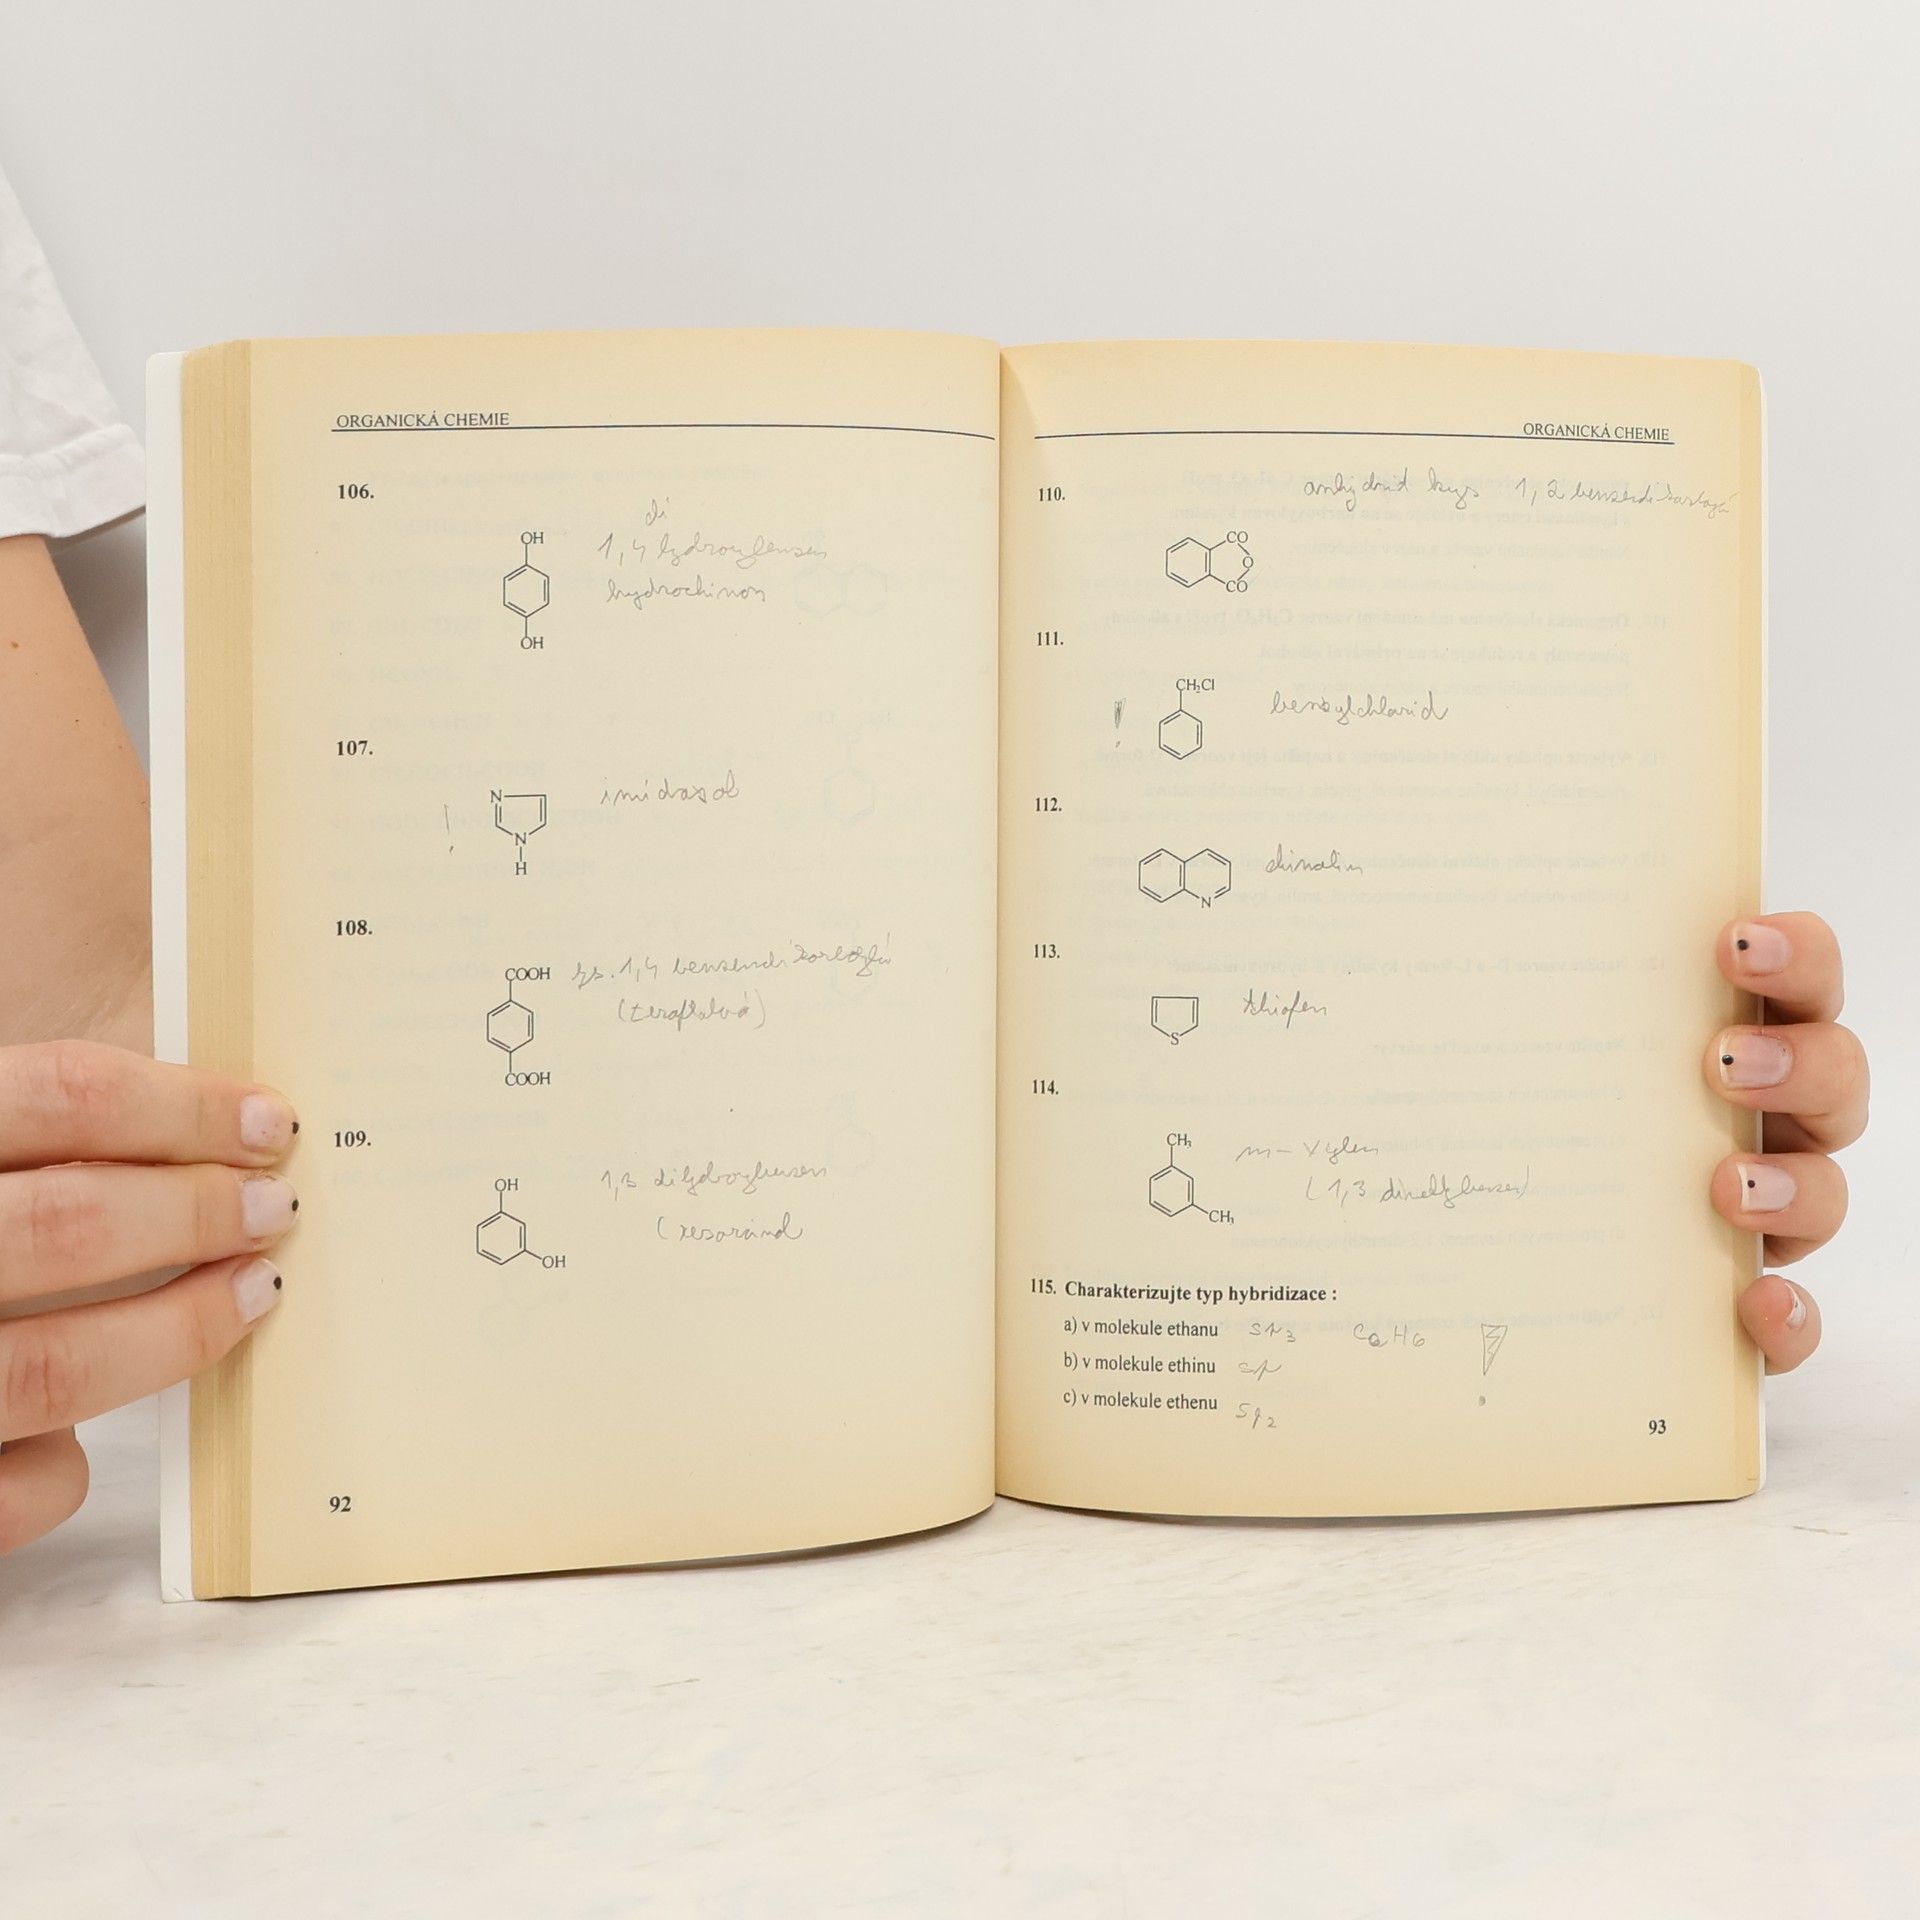 ORGANICKÁ CHEMIE
106.
OH
OH
di
1,4 hydroxybenzen
hydrochinon
107.
N
N
H
!
imidazol
108.
COOH
COOH
1,4 benzendikarboxylová
109.
OH
OH
1,3 dihydroxybenzen
(resorcinol
92
ORGANICKÁ CHEMIE
110.
anhydrid kys 1,2
CO
O
CO
111.
CH₂Cl
!
benzylchlorid
112.
N
chinolin
113.
S
thiofen
114.
CH₃
CH₃
m-xylen
(1,3 dimethylbenzen)
115. Charakterizujte typ hybridizace :
a) v molekule ethanu sp3 C2H6 !
b) v molekule ethinu sp
c) v molekule ethenu sp2
93